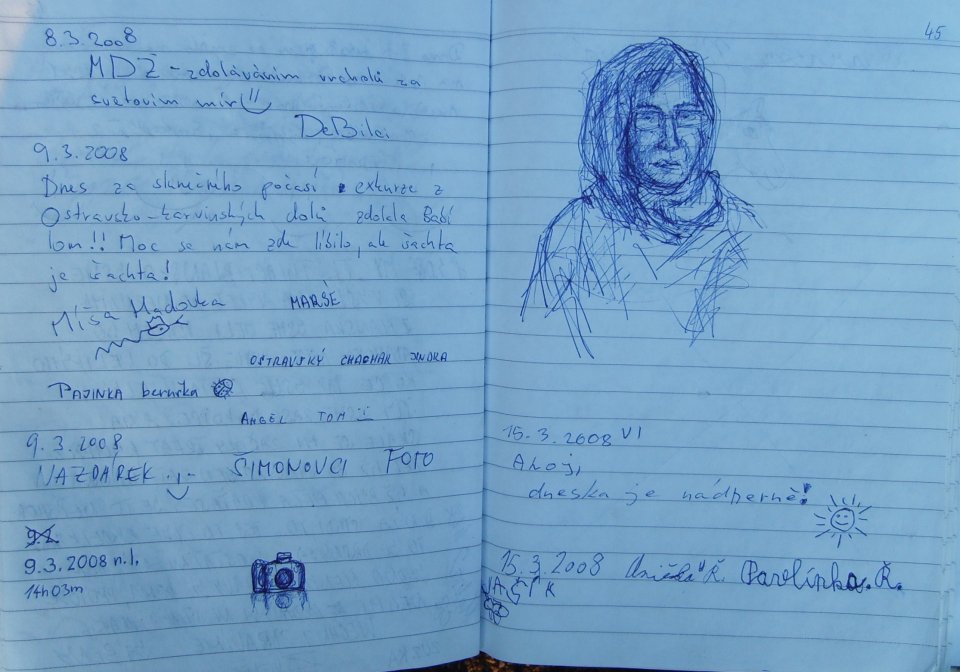 8.3.2008
MDŽ - zdoláváním vrcholů za
světovím mír!!
DeBilci
9.3.2008
Dnes za slunečného počasí exkurze z
Ostravsko-karvinských dolů zdolala Babí
lom!! Moc se nám zde líbilo, ale šachta
je šachta!
Míša Madovka MARŠE
OSTRAVSKÝ CHACHAR JINDRA
PAJINKA beruška
ANGEL TOM
9.3.2008
NAZDÁREK ŠIMONOVCI FOTO
9.2.
9.3.2008 n.l.
14h03m
45
15.3.2008 VI
Ahoj,
dneska je nádherně!
15.3.2008 Anička Ř. Pavlínka Ř.
VAŠÍK